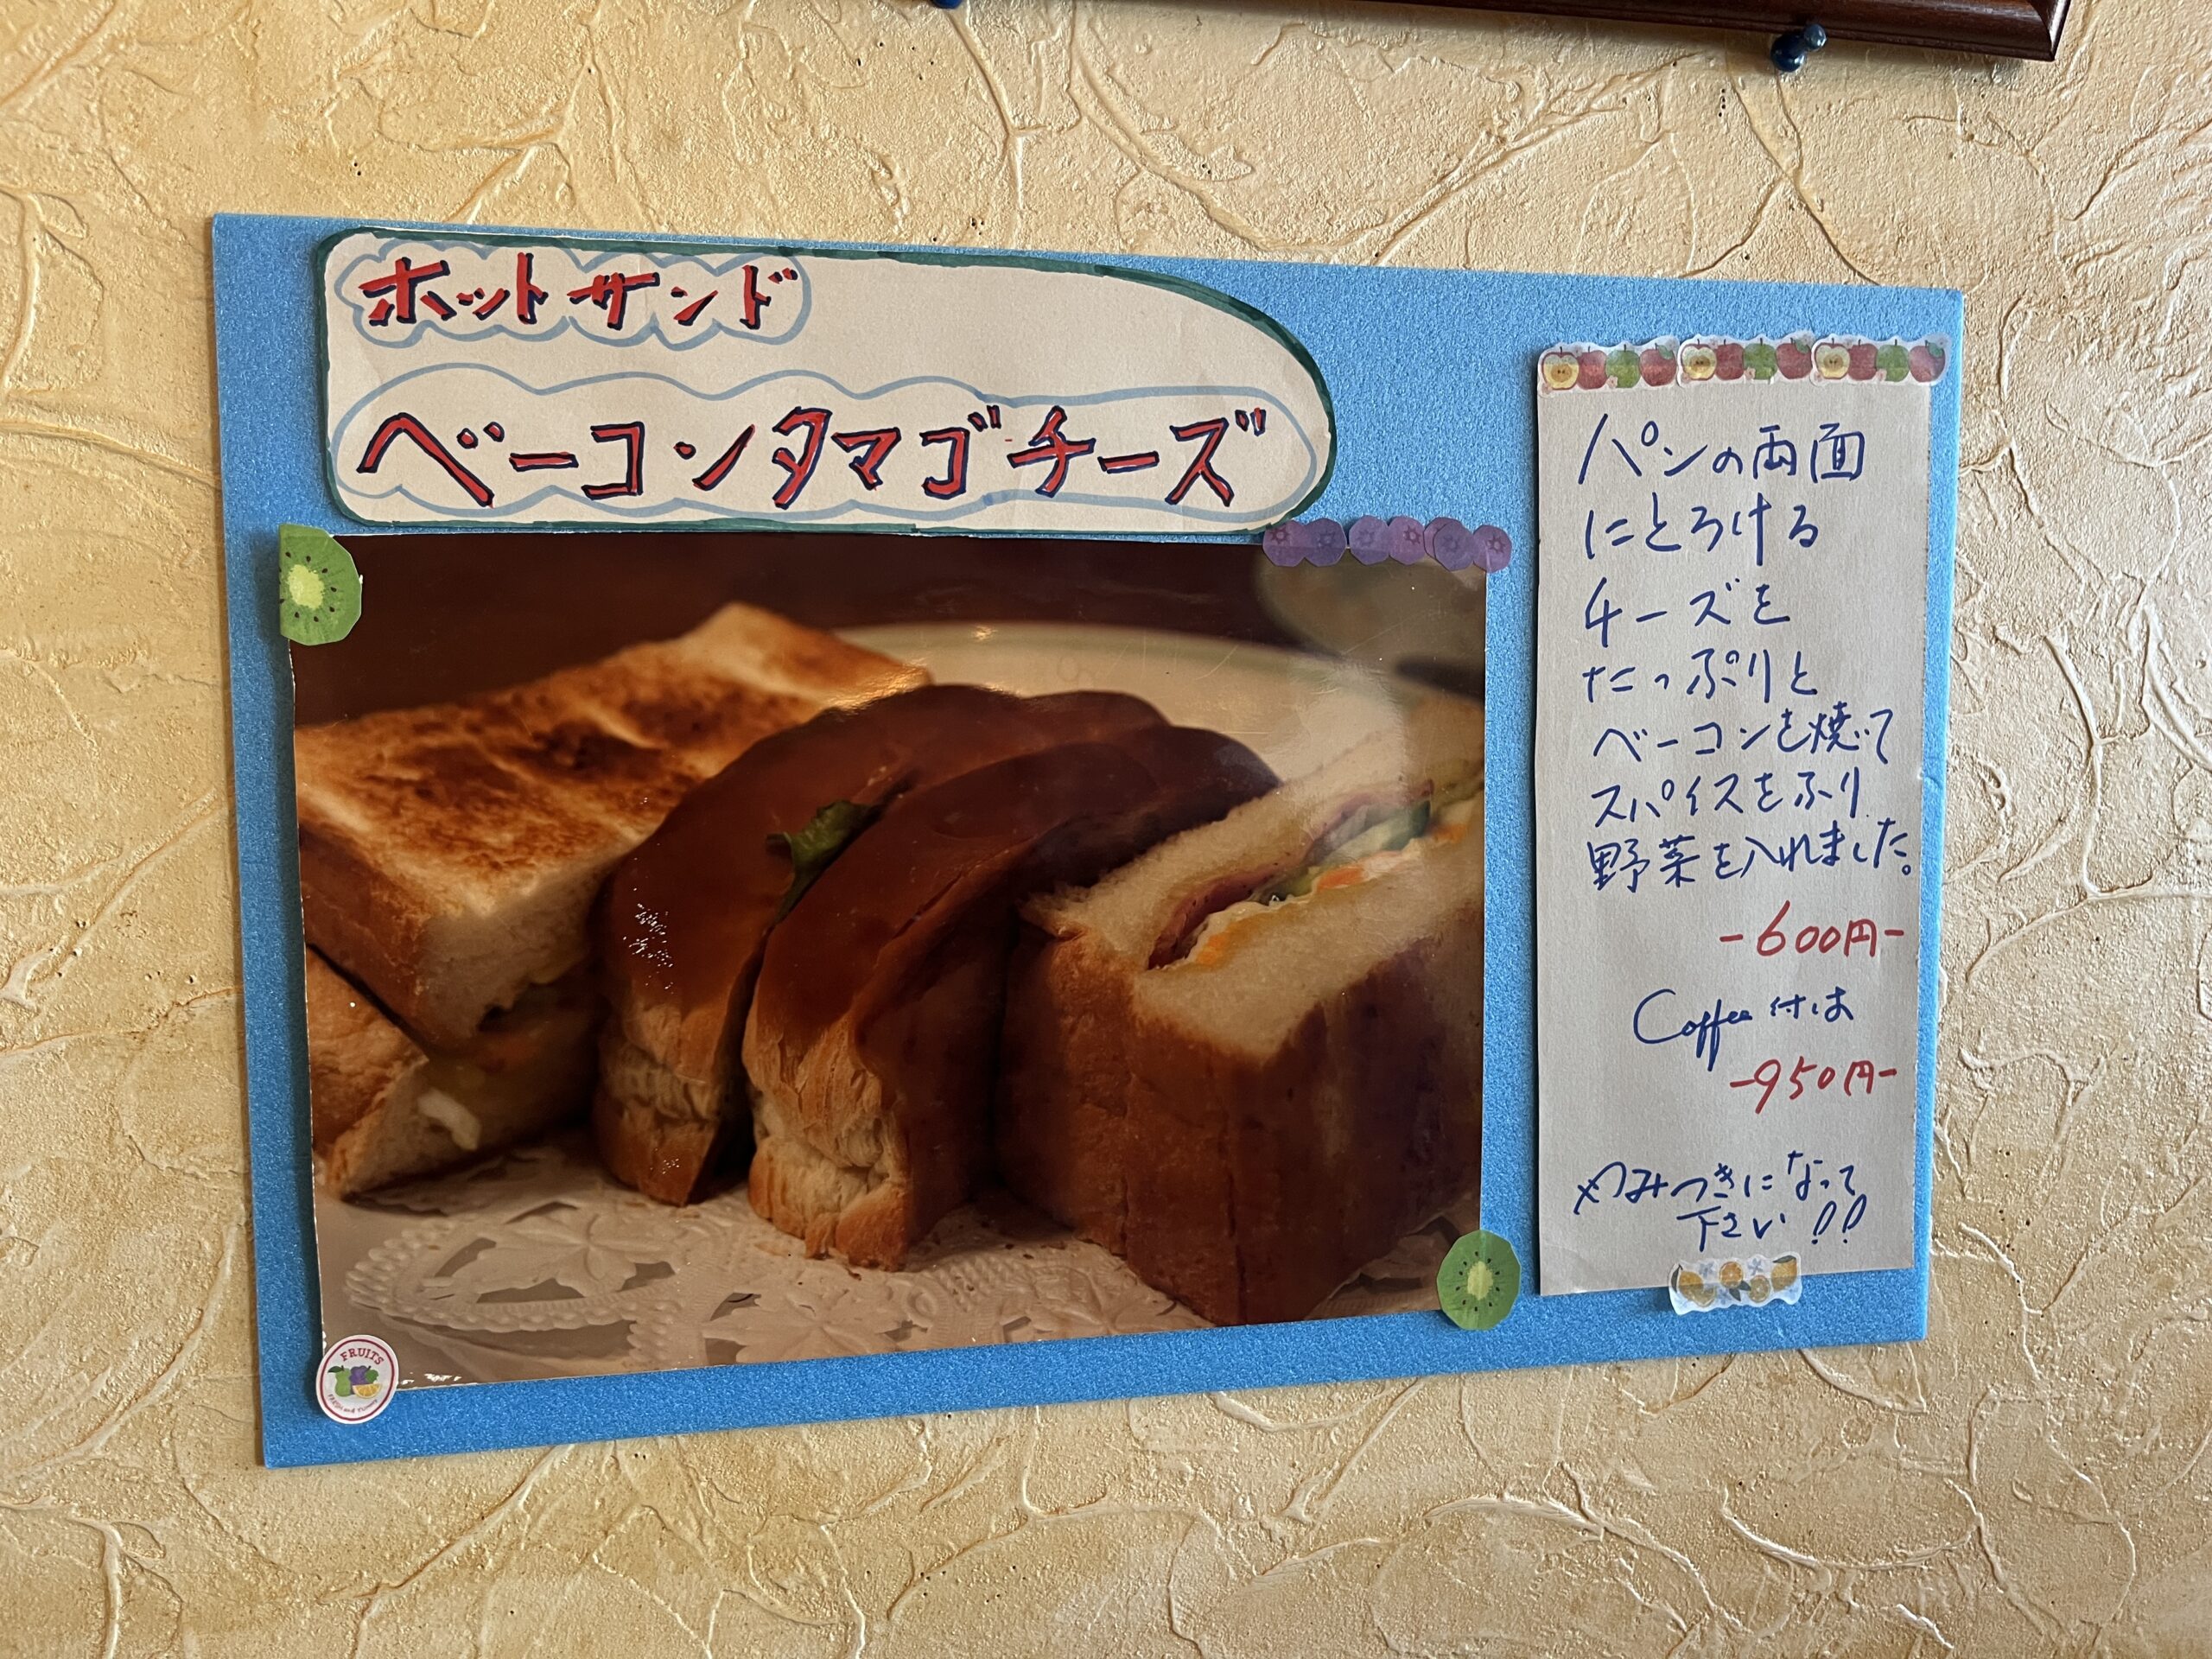 ホットサンド
ベーコンタマゴチーズ
パンの両面
にとろける
チーズを
たっぷりと
ベーコンを焼いて
スパイスをふり
野菜を入れました。
-600円-
Coffee付は
-950円-
やみつきになって
下さい!!
FRUITS